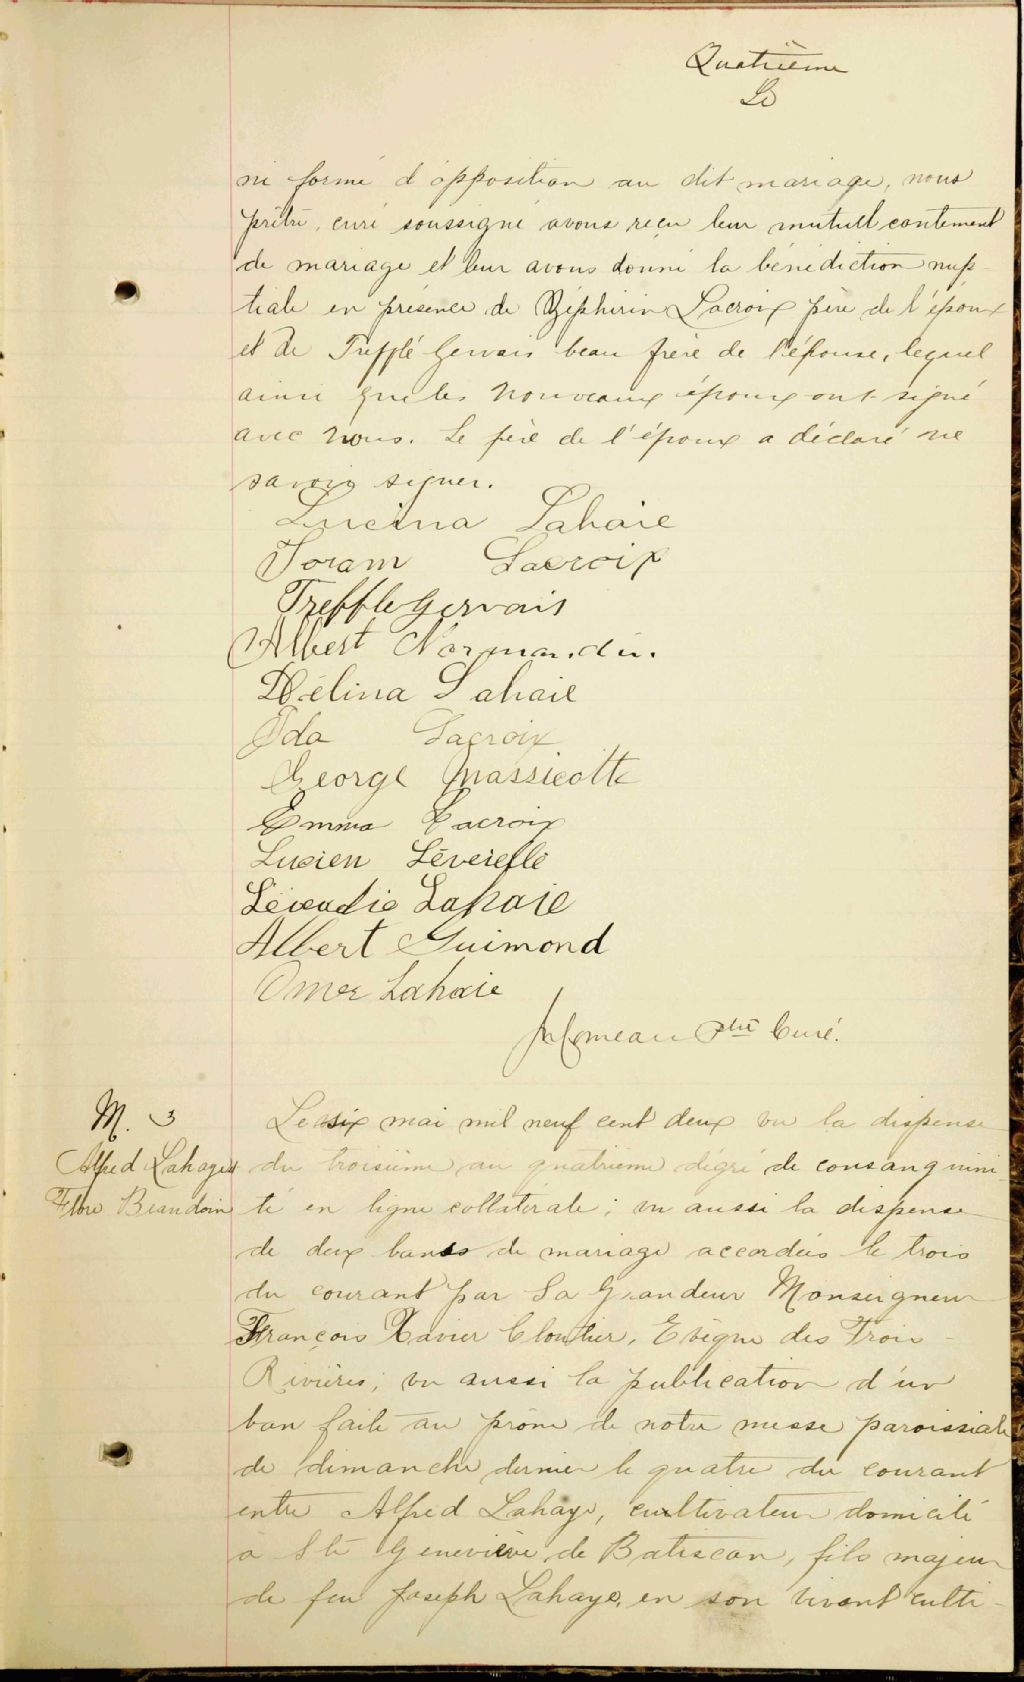 Quatrième
ni formé d'opposition au dit mariage, nous
prêtre, curé soussigné avons reçu leur mutuel contement
de mariage et leur avons donné la bénédiction nup-
tiale en présence de Zéphirin Lacroix père de l'époux
et de Trefflé Gervais beau frère de l'épouse, lequel
ainsi que les nouveaux époux ont signé
avec nous. Le père de l'époux a déclaré ne
savoir signer.
Lucina Lahaie
Joram Lacroix
Treffle Gervais
Albert Normandin.
Délina Lahaie
Ida Lacroix
George Massicotte
Emma Lacroix
Lucien Léveillé
Léocadie Lahaie
Albert Guimond
Omer Lahaie
Comeau Ptre Curé.
M. 3
Alfred Lahaye &
Flore Beaudoin
Le six mai mil neuf cent deux vu la dispense
du troisième au quatrième dégré de consanguini-
té en ligne collatérale; vu aussi la dispense
de deux bancs de mariage accordées le trois
du courant par Sa Grandeur Monseigneur
François Xavier Cloutier, Evèque des Trois-
Rivières; vu aussi la publication d'un
ban faite au prône de notre messe paroissiale
de dimanche dernier le quatre du courant
entre Alfred Lahaye, cultivateur domicilé
à Ste Geneviève de Batiscan, fils majeur
de feu Joseph Lahaye, en son vivant culti-